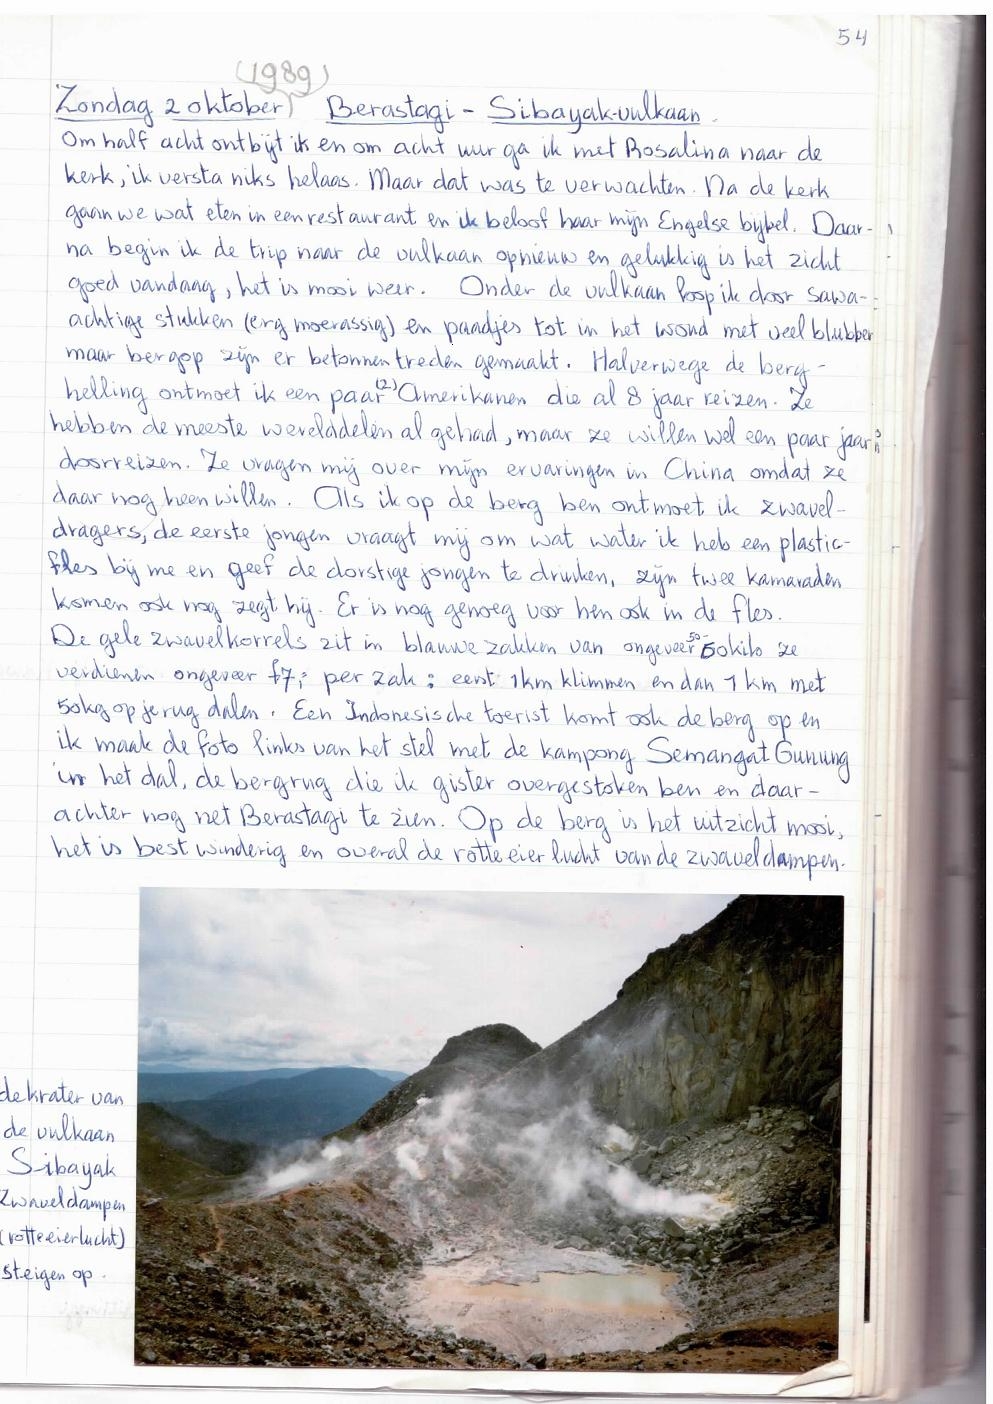 54
(1989)
Zondag 2 oktober) Berastagi - Sibayak-vulkaan.
Om half acht ontbijt ik en om acht uur ga ik met Rosalina naar de
kerk, ik versta niks helaas. Maar dat was te verwachten. Na de kerk
gaan we wat eten in een restaurant en ik beloof haar mijn Engelse bijbel. Daar-
na begin ik de trip naar de vulkaan opnieuw en gelukkig is het zicht
goed vandaag, het is mooi weer. Onder de vulkaan loop ik door sawa-
achtige stukken (erg moerassig) en paadjes tot in het woud met veel blubber
maar bergop zijn er betonnen treden gemaakt. Halverwege de berg-
helling ontmoet ik een paar (2) Amerikanen die al 8 jaar reizen. Ze
hebben de meeste werelddelen al gehad, maar ze willen wel een paar jaar
doorreizen. Ze vragen mij over mijn ervaringen in China omdat ze
daar nog heen willen. Als ik op de berg ben ontmoet ik zwavel-
dragers, de eerste jongen vraagt mij om wat water ik heb een plastic-
fles bij me en geef de dorstige jongen te drinken, zijn twee kamaraden
komen ook nog zegt hij. Er is nog genoeg voor hen ook in de fles.
De gele zwavelkorrels zit in blauwe zakken van ongeveer 50- 60kilo ze
verdienen ongeveer f7,- per zak: eerst 1km klimmen en dan 1 km met
50kg op je rug dalen. Een Indonesische toerist komt ook de berg op en
ik maak de foto links van het stel met de kampong Semangat Gunung
in het dal, de bergrug die ik gister overgestoken ben en daar-
achter nog net Berastagi te zien. Op de berg is het uitzicht mooi,
het is best winderig en overal de rotte eier lucht van de zwaveldampen.
de krater van
de vulkaan
Sibayak
Zwaveldampen
(rotte eierlucht)
steigen op.